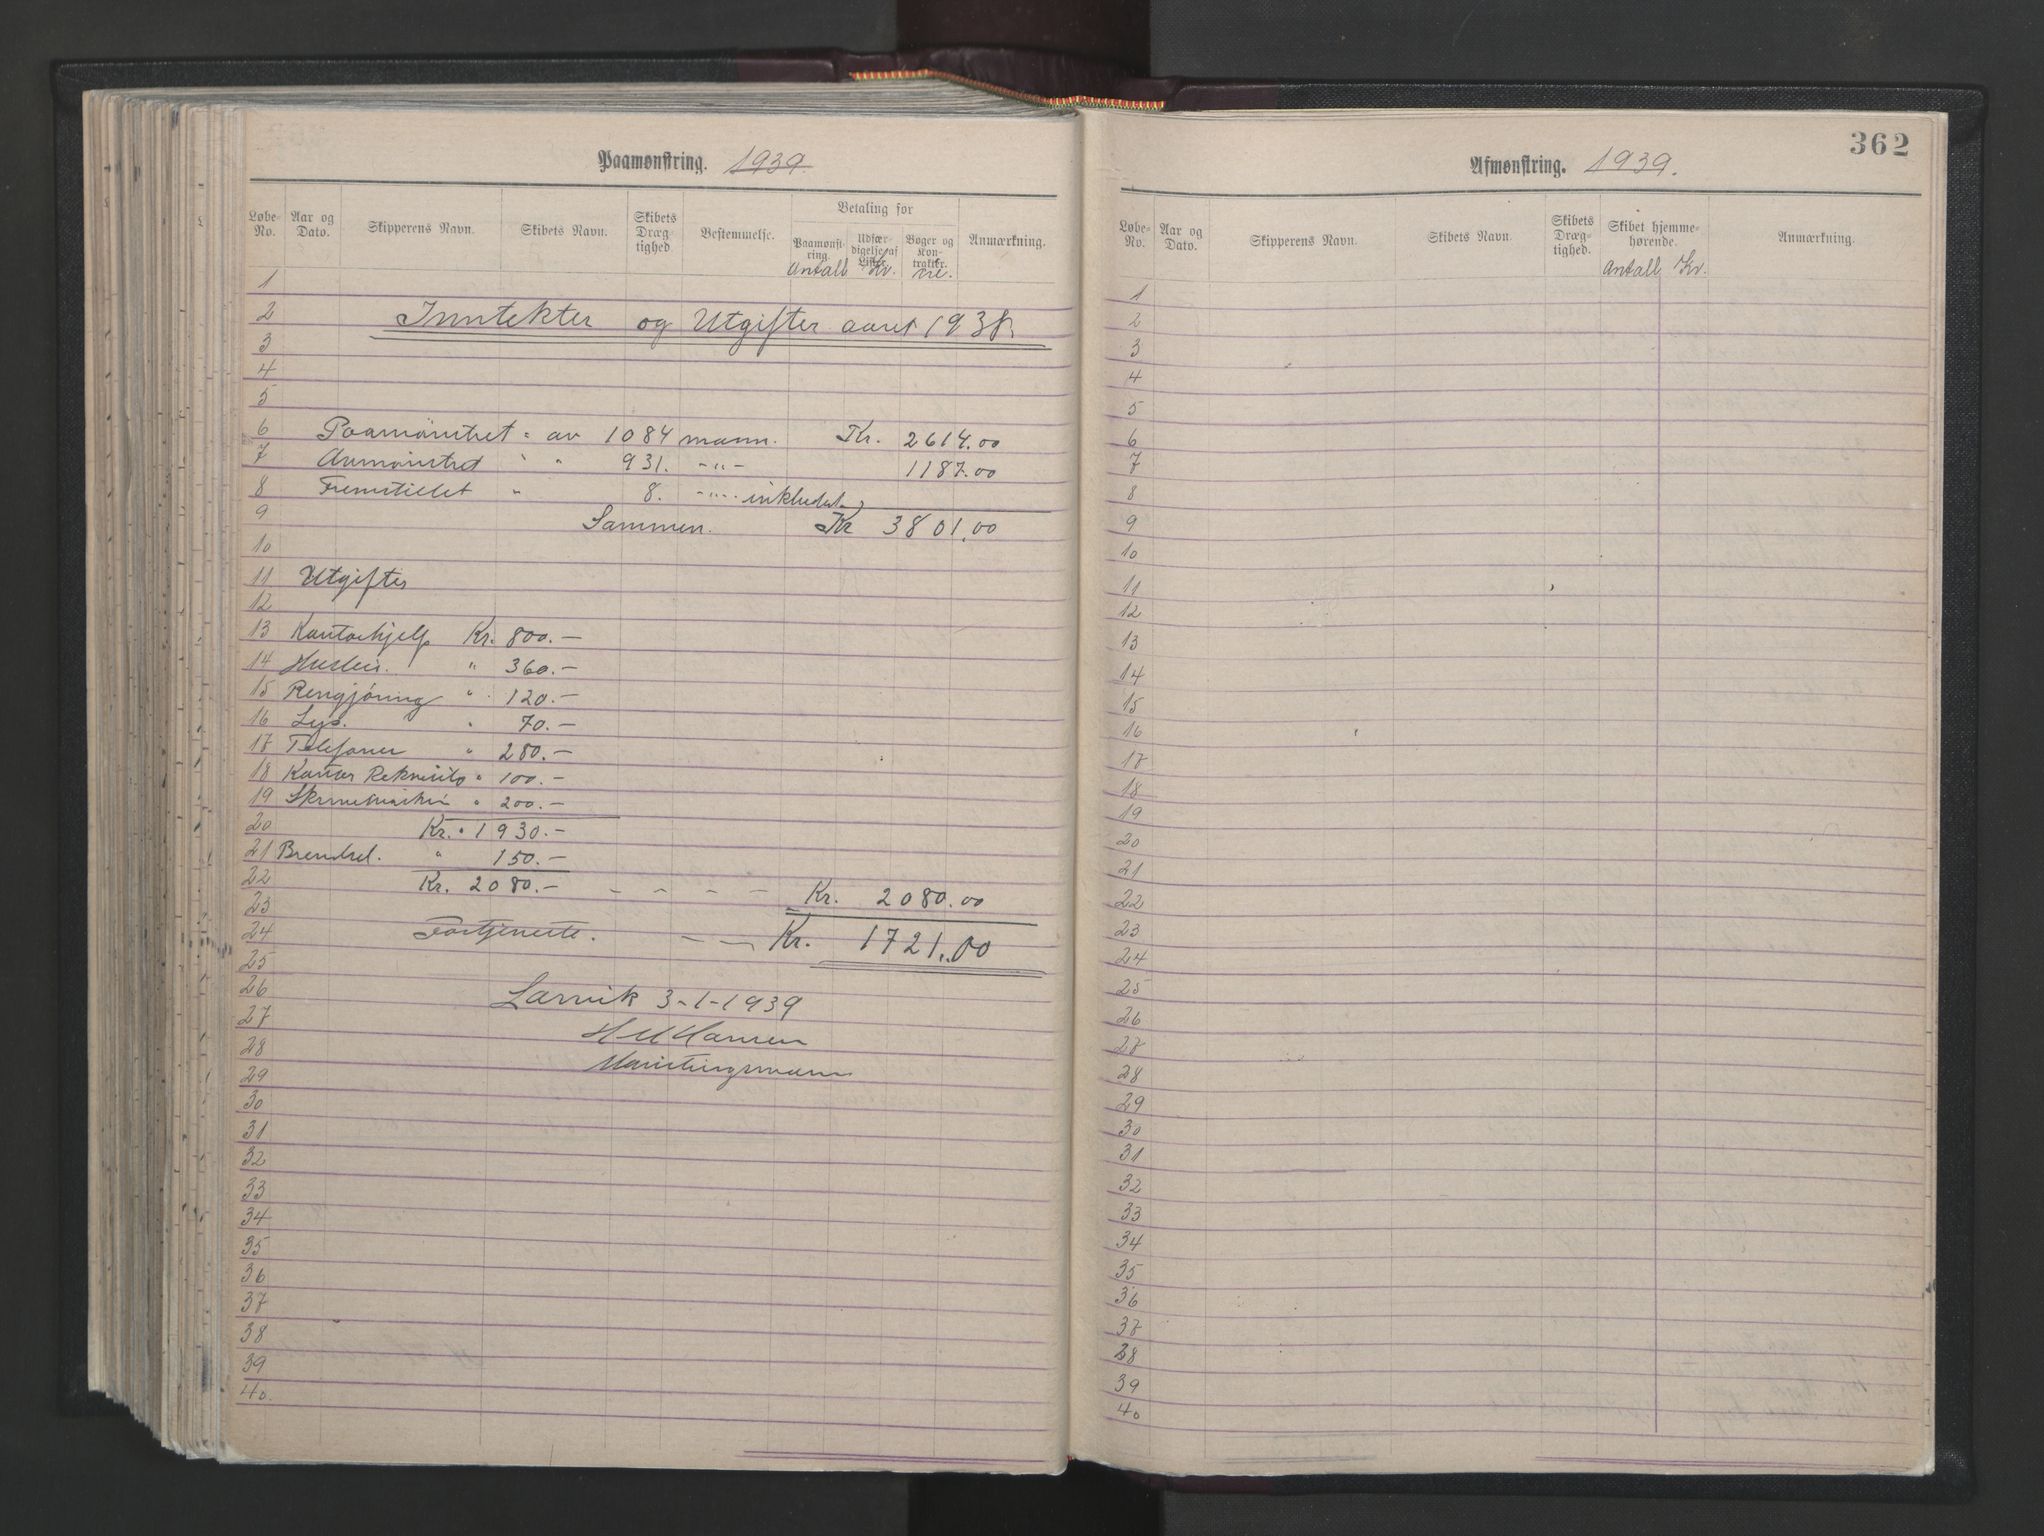 Paamønstring. 1939
Løbe-No. Aar og Dato. Skipperens Navn. Skibets Navn. Skibets Dræg-tighed Bestemmelse. Betaling for Paamønst-ring. Udfær-digelse af Lister. Bøger og Kon-trakter. Anmærkning.
Antall Kr. øre.
1
2 Inntekter og Utgifter aaret 1938
3
4
5
6 Paamönstret : av 1084 mann. Kr. 2614.00
7 Avmönstred " " 931. -"- 1187.00
8 Fremstillet " 8. -"- inkludert
9 Sammen. Kr 3801.00
10
11 Utgifter
12
13 Kontorhjelp Kr. 800.-
14 Husleie. " 360.-
15 Rengjöring " 120.-
16 Lys. " 70.-
17 Telefoner " 280.-
18 Kontor Rekvisita " 100.-
19 Skrivemaskin " 200.-
20 Kr. 1930.-
21 Brendsel. " 150.-
22 Kr. 2080.- - - - - Kr. 2080.00
23
24 Fortjeneste. - - Kr. 1721.00
25
26 Larvik 3-1-1939
27 H M Hansen
28 Mönstringsmann
29
30
31
32
33
34
35
36
37
38
39
40.
362
Afmønstring. 1939.
Løbe-No. Aar og Dato. Skipperens Navn. Skibets Navn. Skibets Dræg-tighed. Skibet hjemme-hørende. Anmærkning.
Antall Kr.
1
2
3
4
5
6
7
8
9
10
11
12
13
14
15
16
17
18
19
20
21
22
23
24
25
26
27
28
29
30
31
32
33
34
35
36
37
38
39
40